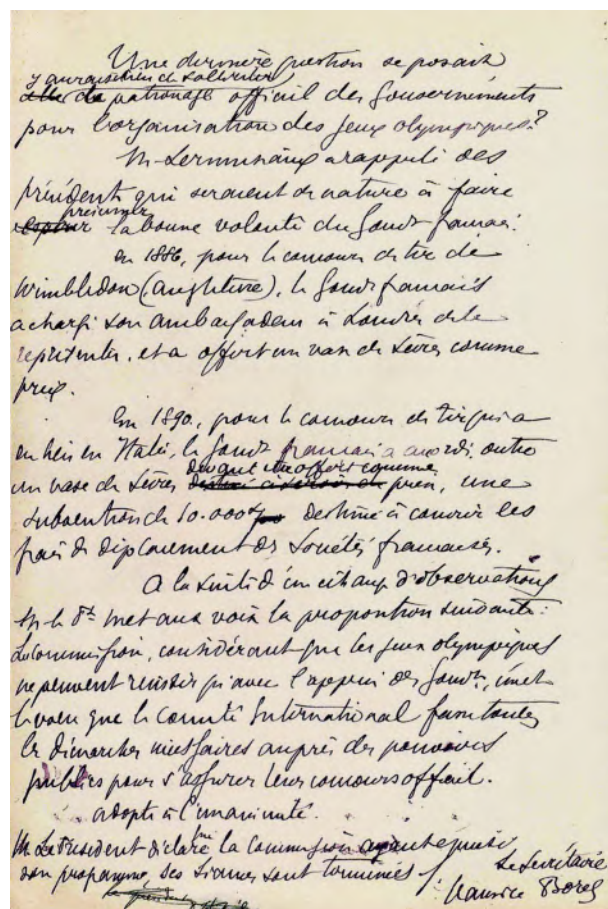 Une dernière question se posait
y aurait-il lieu de solliciter
elle de patronage officiel des Gouvernements
pour l'organisation des jeux olympiques?
M. Lermusiaux a rappelé des
précédents qui seraient de nature à faire
présumer
espérer la bonne volonté du Gouvt français.
En 1886, pour le concours de tir de
Wimbledon (Angleterre), le Gouvt français
a chargé son ambassadeur à Londres de le
représenter, et a offert un vase de Sèvres comme
prix.
En 1890, pour le concours de tir qui a
eu lieu en Italie, le Gouvt français a accordé, outre
devant être offert comme
un vase de Sèvres destiné à servir de prix, une
subvention de 10.000 f destinée à couvrir les
frais de déplacement des Sociétés françaises.
A la suite d'un échange d'observations
M. le Pt met aux voix la proposition suivante:
La Commission, considérant que les jeux olympiques
ne peuvent réussir qu'avec l'appui des Gouvts, émet
le voeu que le Comité International fasse toutes
les démarches nécessaires auprès des pouvoirs
publics pour s'assurer leur concours officiel.
adopté à l'unanimité.
M. Le Président déclare que la Commission ayant épuisé
son programme, ses séances sont terminées
Le Secrétaire
Maurice Borel